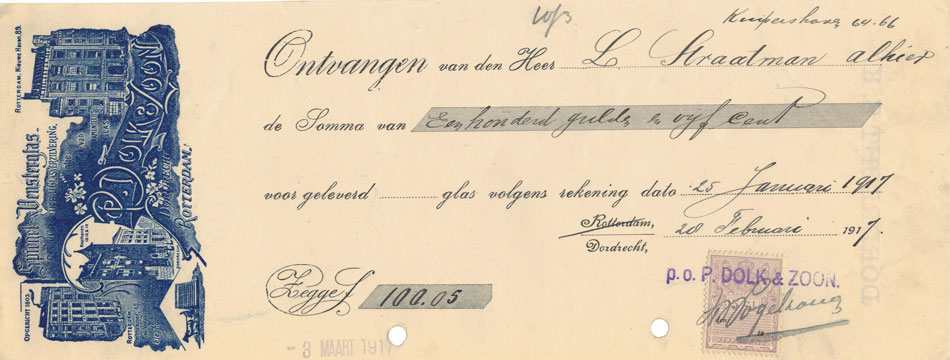 10/3
Kuipershaven 64-66
Ontvangen van den Heer L. Straatman alhier
de Somma van Een honderd gulden en vijf cent
voor geleverd glas volgens rekening dato 25 Januari 1917
Rotterdam,
Dordrecht, 20 Februari 1917
Zegge f 100.05
p.o. P. DOLK & ZOON.
- 3 MAART 1917
ROTTERDAM, Nieuwe Haven 89.
P. DOLK & ZOON
Spiegel- en Vensterglas
ROTTERDAM.
OPGERICHT 1803
ROTTERDAM